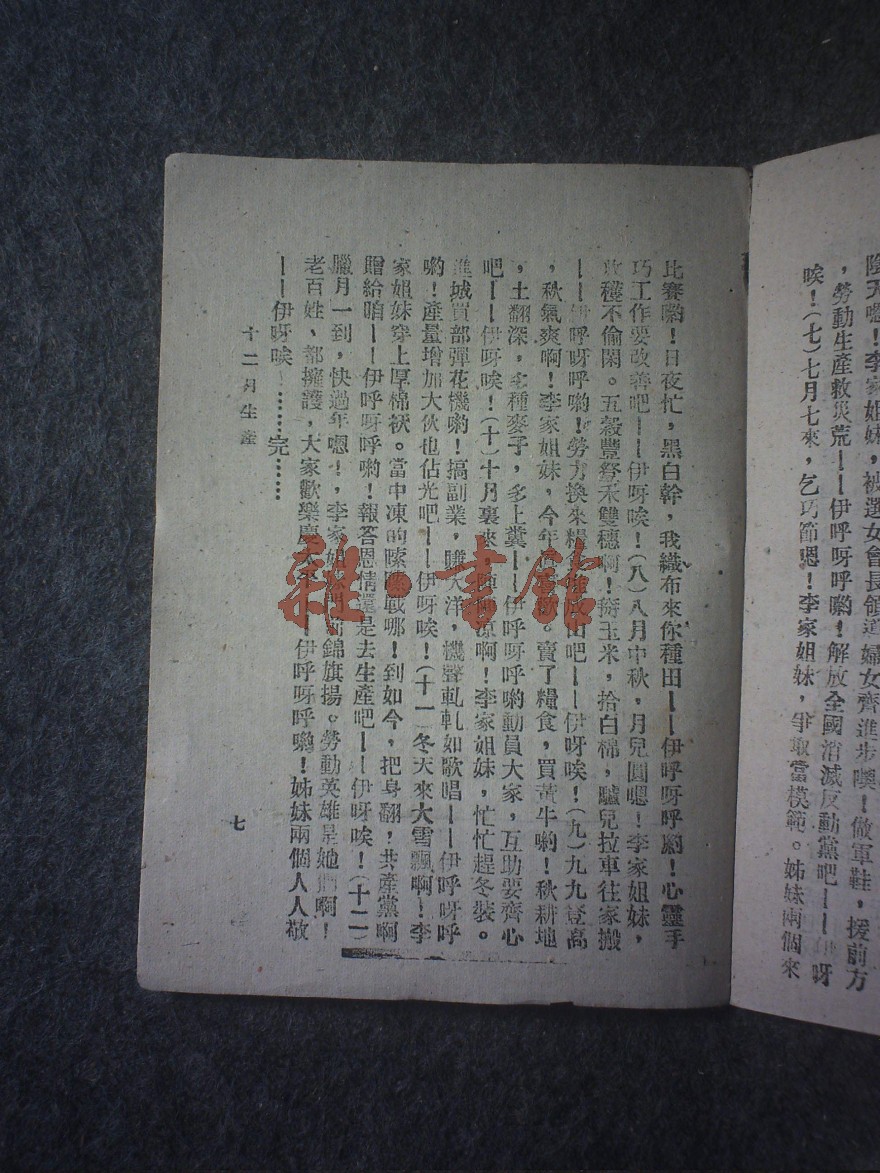 陰天嗯！李家姐妹，被選女會長領導婦女齊進步噢—做軍鞋，援前方
，勞動生產救災荒——伊呼呀呼喲！解放全國消滅反動黨吧——伊呀
唉！(七)七月七來，乞巧節嗯！李家姐妹，爭取當模範。姊妹兩個來
比賽喲！日夜忙，黑白幹，我織布來你種田——伊呼呀呼喲！心靈手
巧工作要改善吧——伊呀唉！(八)八月中秋，月兒圓嗯！李家姐妹，
收穫不偷閑。五穀豐登禾雙穗啊！掰玉米，拾白棉，驢兒拉車往家搬
——伊呼呀呼喲！勞力換來糧食吧——伊呀唉！(九)九九登高
，秋氣爽啊！李家姐妹，今年。賣了糧食，買黃牛喲！秋耕地
，土翻深，多種麥子，多上糞——伊呼呀呼喲動員大家，互助要齊心
吧——伊呀唉！(十)十月裏來！涼啊！李家姐妹，忙忙趕冬裝。
進城買部彈花機喲！搞副業，賺大洋，機聲軋軋如歌唱——伊呼呀呼
喲！產量增加大伙也佔光吧——伊呀唉！(十一冬天來大雪飄啊！李
家姐妹穿上厚棉袄。當中凍的戰哪！到如今，把身翻，共產黨啊
贈給咱——伊呼呀呼喲！報答恩情還是去生產吧——伊呀唉！(十二)
臘月一到，快過年嗯！，李家姐妹錦旗揚。勞動英雄是她們啊！
老百姓、都擁護，大家歡樂慶—伊呼呀呼喲！姊妹兩個人人敬
——伊呀唉！……完……
十二月生產
七
雜·書館